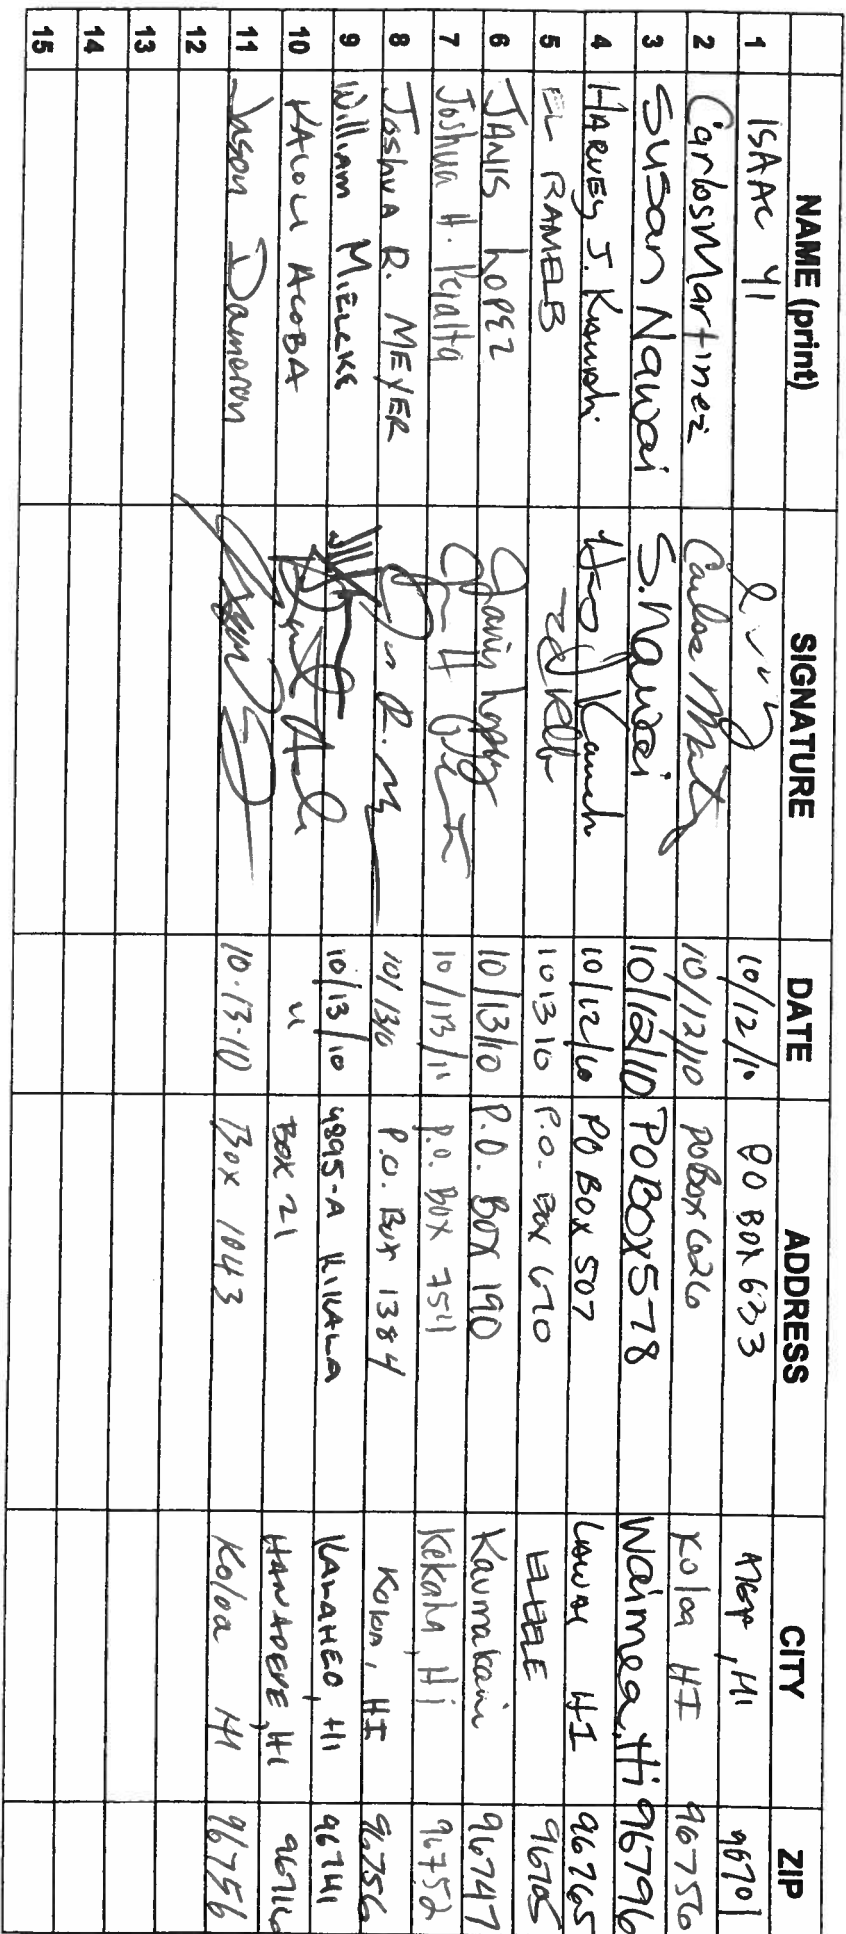 NAME (print) SIGNATURE DATE ADDRESS CITY ZIP
1 ISAAC YI 10/12/10 PO BOX 633 HI 96701
2 Carlos Martinez Carlos 10/12/10 PO Box 626 Koloa HI 96756
3 Susan Nawai S. Nawai 10/12/10 PO BOX 578 Waimea, Hi 96796
4 HARVEY J. 10/12/10 PO BOX 507 LAWAI HI 96765
5 EL RAMELB 101310 P.O. Box 670 ELEELE 96705
6 JANIS LOPEZ Janis Lopez 10/13/10 P.O. BOX 190 Kaumakani 96747
7 Joshua H. Peralta 10/13/11 P.O. BOX 754 Kekaha, Hi 96752
8 Joshua R. MEYER 10/13/10 P.O. Box 1384 Koloa, HI 96756
9 William MIELCKE 10/13/10 4895-A KIKALA KALAHEO, HI 96741
10 KALOLI ACOBA " BOX 21 HANAPEPE, HI 96716
11 Jason Dameron 10-13-10 Box 1043 Koloa HI 96756
12
13
14
15